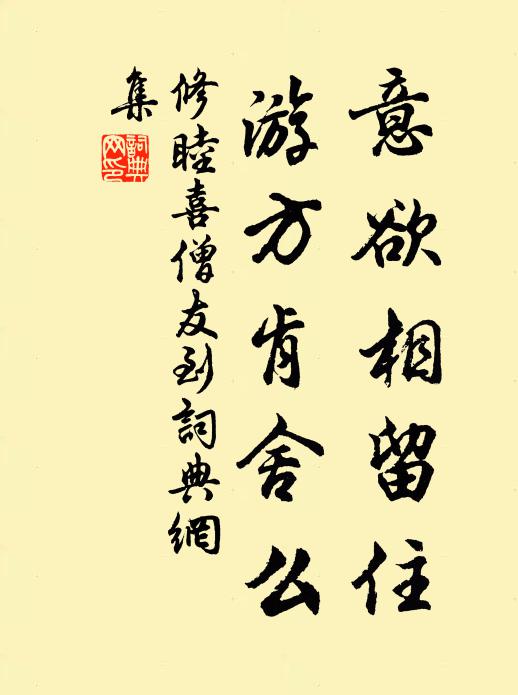 意欲相留住
游方肯舍么
修睦喜僧友到詞典網
集
詞典
网印